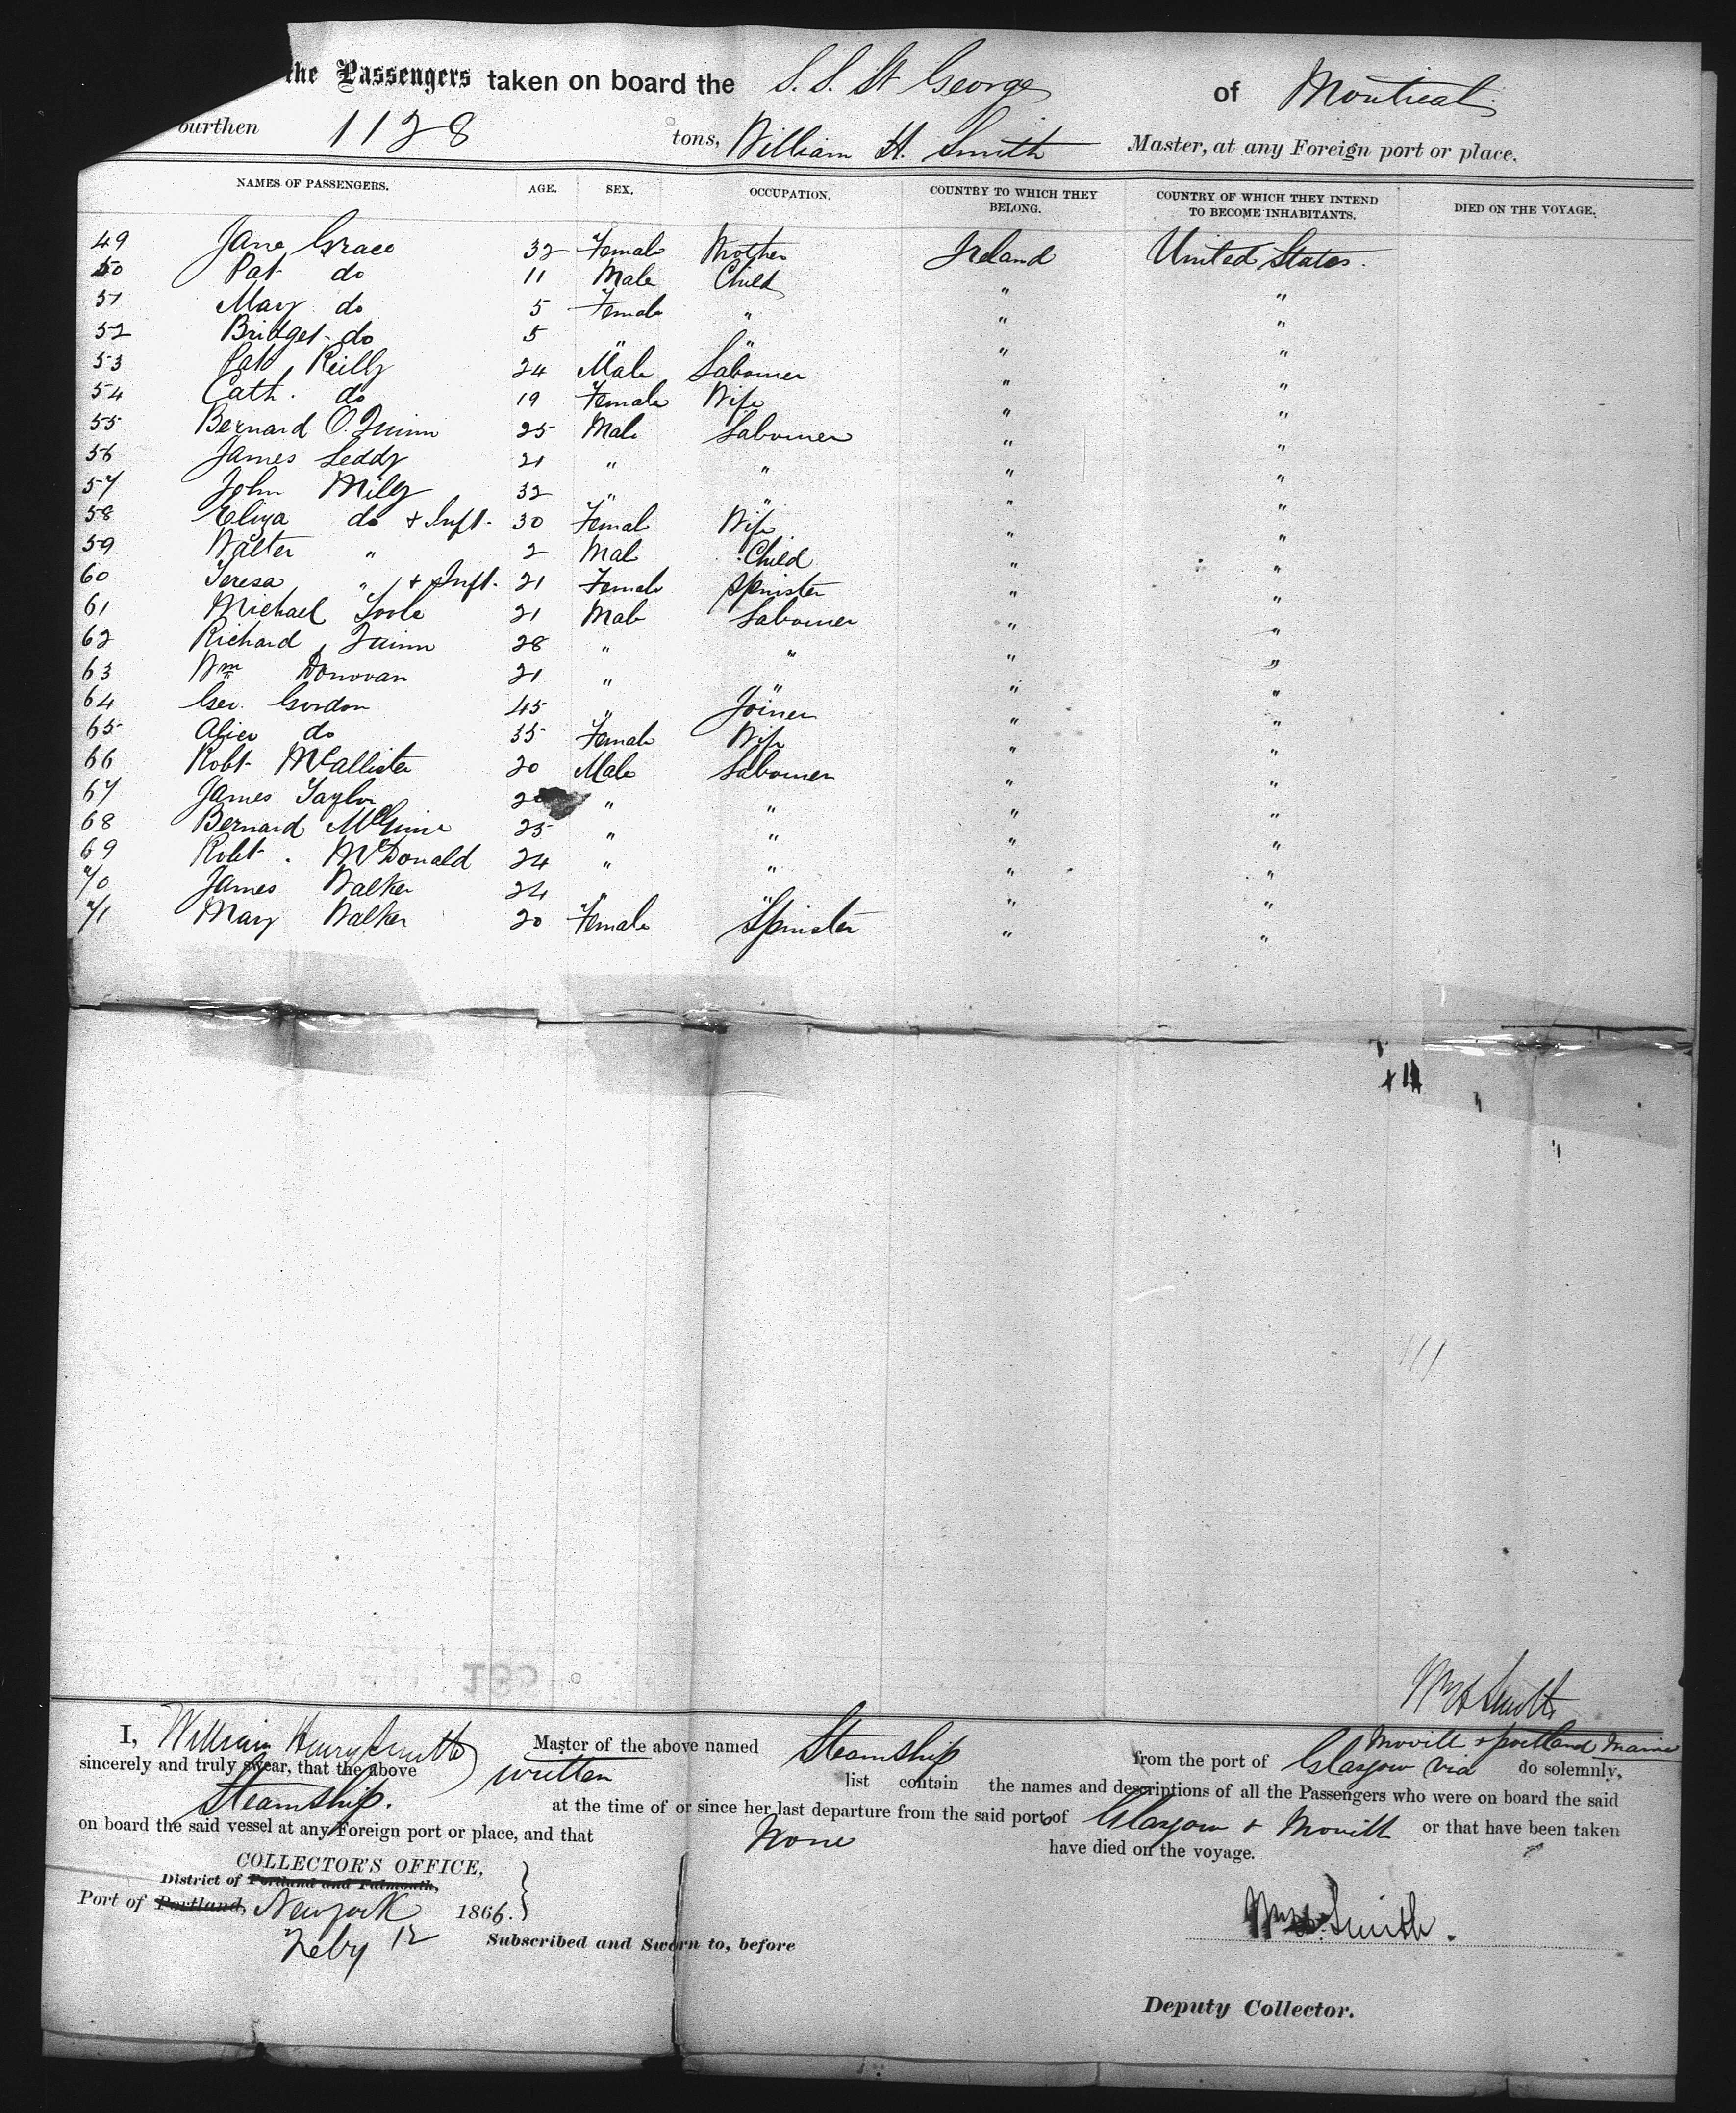 the Passengers taken on board the S. S. St George of Montreal.
ourthen 1128 tons, William H. Smith Master, at any Foreign port or place.
NAMES OF PASSENGERS. AGE. SEX. OCCUPATION. COUNTRY TO WHICH THEY BELONG. COUNTRY OF WHICH THEY INTEND TO BECOME INHABITANTS. DIED ON THE VOYAGE.
49 Jane Grace 32 Female Mother Ireland United States.
50 Pat do 11 Male Child " "
51 Mary do 5 Female " " "
52 Bridget do 5 " " " "
53 Pat Reilly 24 Male Labourer " "
54 Cath. do 19 Female Wife " "
55 Bernard O.Quinn 25 Male Labourer " "
56 James Leddy 21 " " " "
57 John Milly 32 " " " "
58 Eliza do + Inft. 30 Female Wife " "
59 Walter " 2 Male Child " "
60 Teresa " + Inft. 21 Female Spinster " "
61 Michael Toole 21 Male Labourer " "
62 Richard Quinn 28 " " " "
63 Wm Donovan 21 " " " "
64 Geo. Gordon 45 " Joiner " "
65 Alice do 35 Female Wife " "
66 Robt McCallister 20 Male Labourer " "
67 James Taylor " " " "
68 Bernard McGuire 25 " " " "
69 Robt. McDonald 24 " " " "
70 James Walker 24 " " " "
71 Mary Walker 20 Female Spinster " "
Wm H Smith
I, William Henry Smith Master of the above named Steamship from the port of Glasgow via Movill & Portland Maine do solemnly,
sincerely and truly swear, that the above written list contain the names and descriptions of all the Passengers who were on board the said
Steamship. at the time of or since her last departure from the said ports of Glasgow & Movill or that have been taken
on board the said vessel at any Foreign port or place, and that None have died on the voyage.
COLLECTOR'S OFFICE,
District of Portland and Falmouth,
Port of Portland, New york 1866.
Feby 12
Subscribed and Sworn to, before
Wm H. Smith.
Deputy Collector.